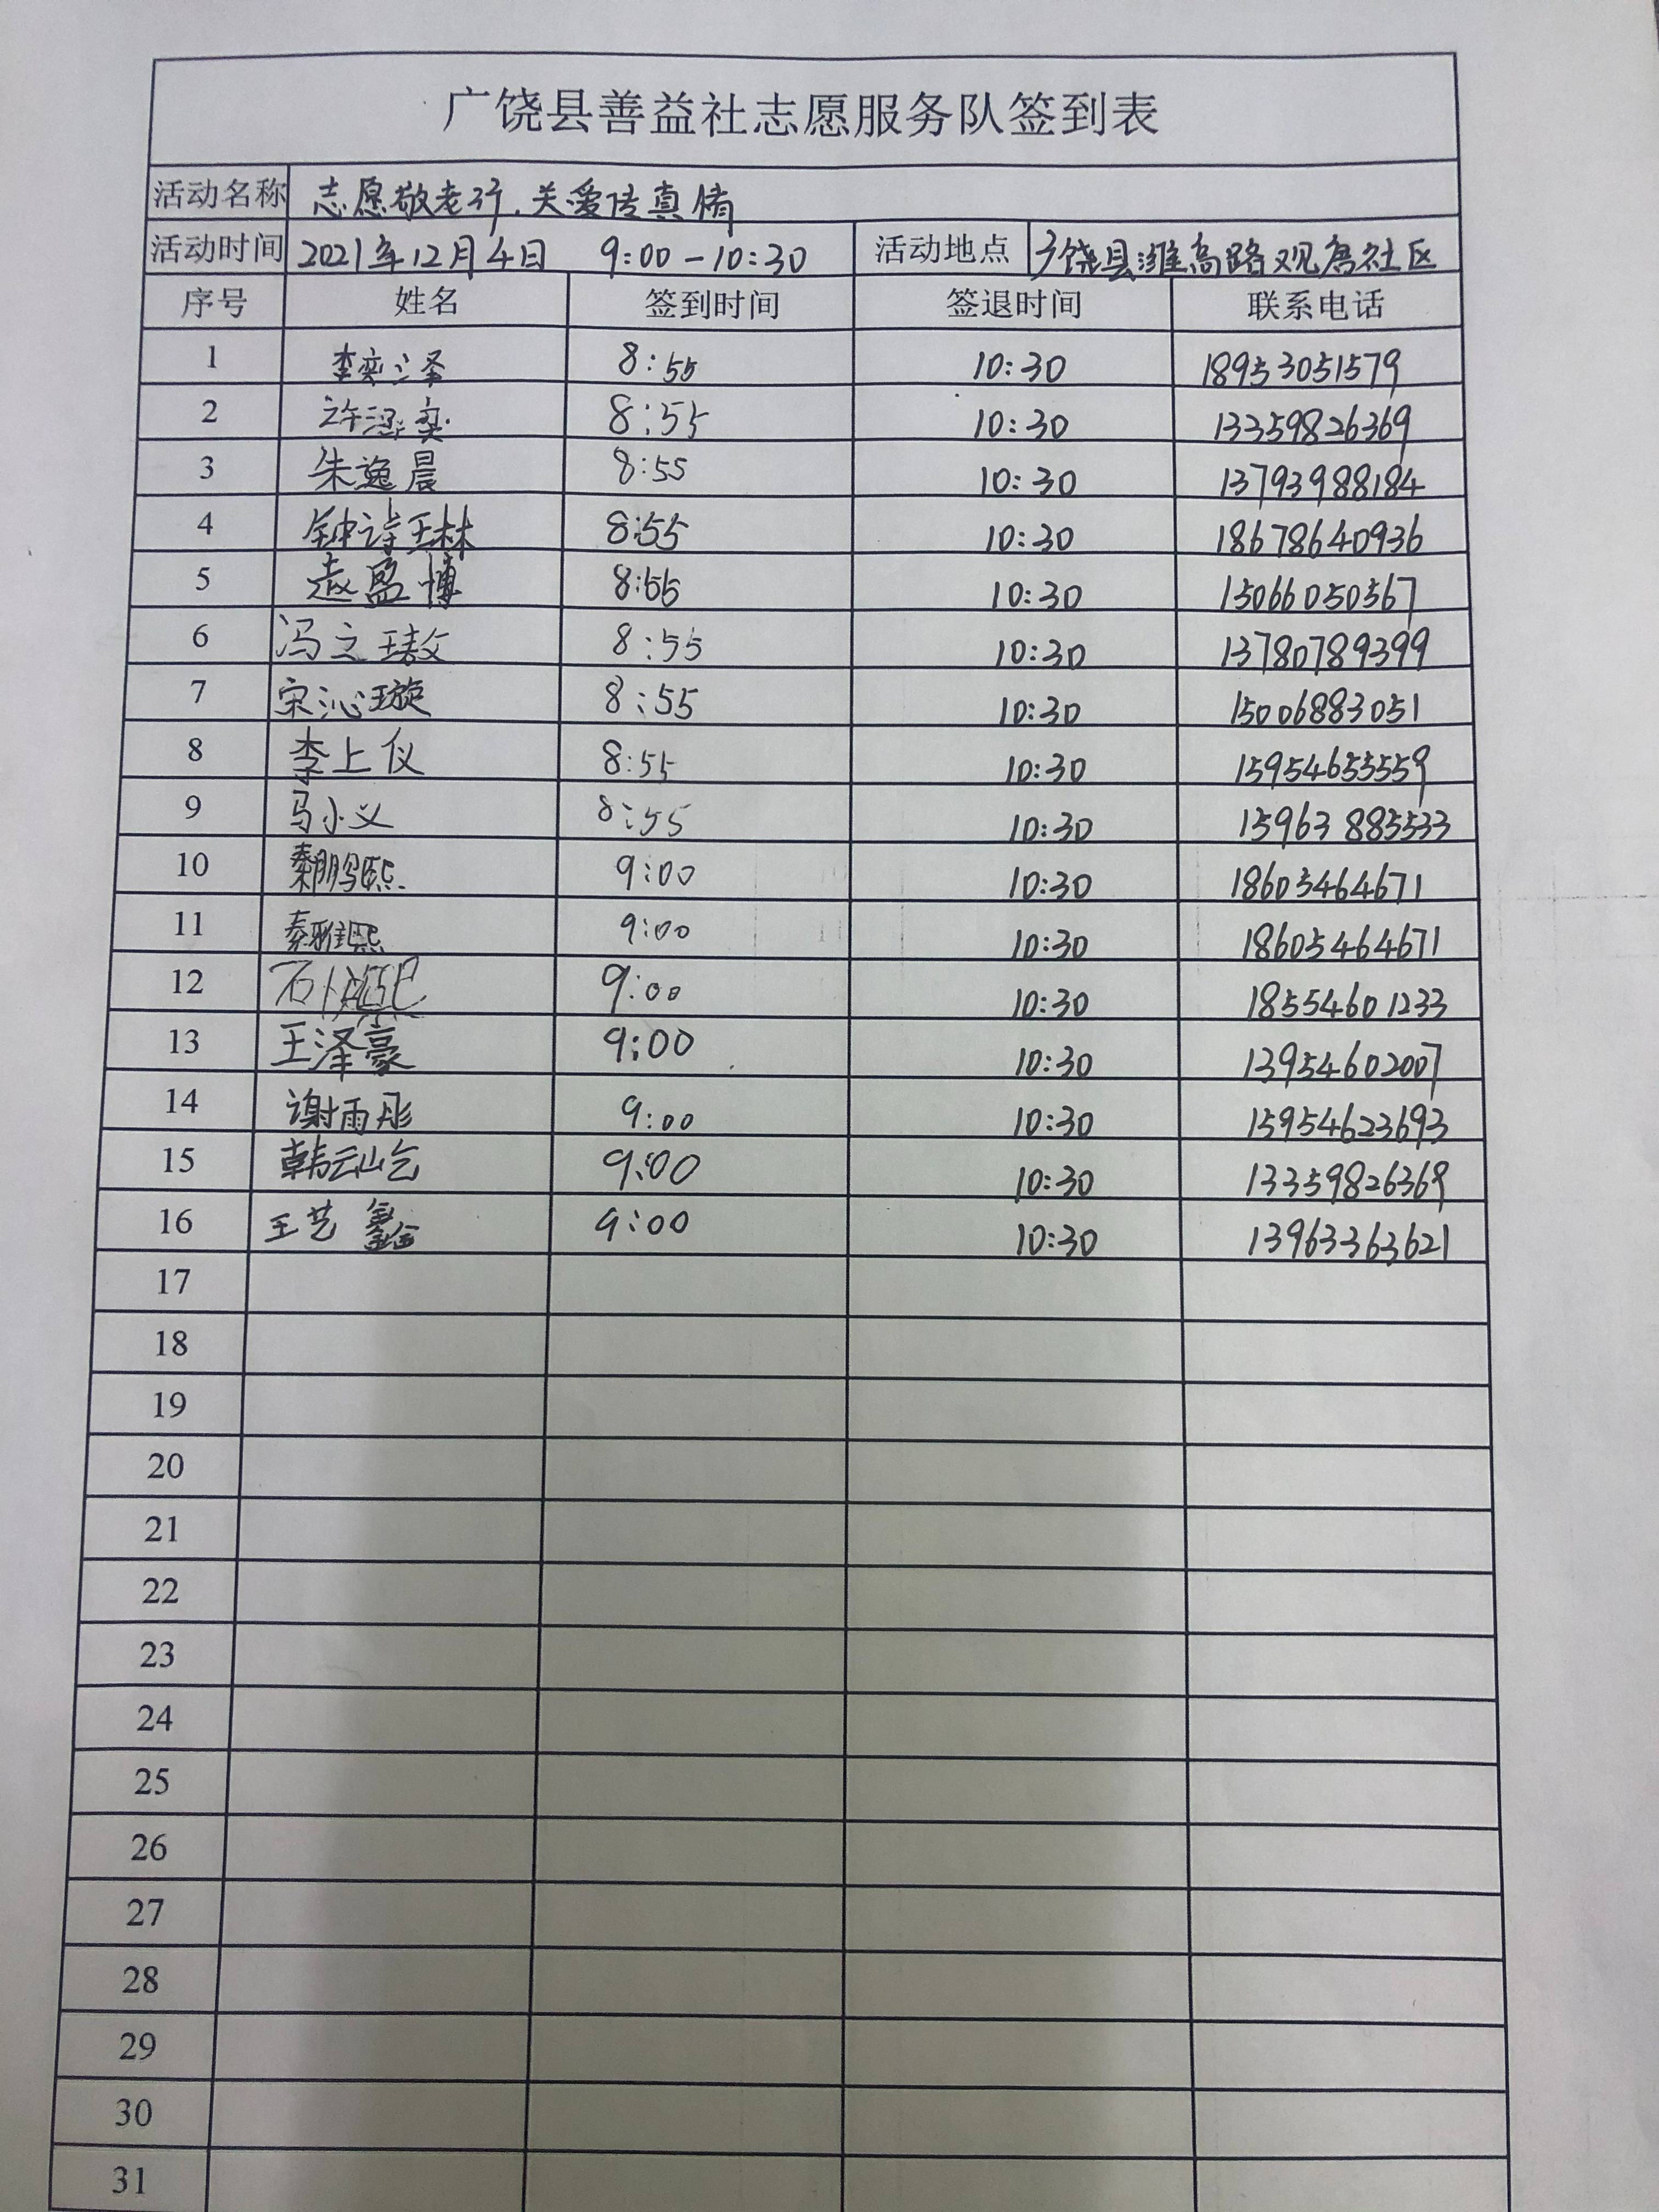 广饶县善益社志愿服务队签到表
活动名称 志愿敬老行,关爱传真情
活动时间 2021年12月4日 9:00-10:30 活动地点 广饶县潍高路观唐社区
序号 姓名 签到时间 签退时间 联系电话
1 李奕泽 8:55 10:30 18953051579
2 许涵奕 8:55 10:30 13359826369
3 朱逸晨 8:55 10:30 13793988184
4 钟诗琳 8:55 10:30 18678640936
5 盈博 8:55 10:30 15066050567
6 冯立璈 8:55 10:30 13780789399
7 宋沁璇 8:55 10:30 15006883051
8 李上仪 8:55 10:30 15954655559
9 马小义 8:55 10:30 15963885533
10 秦鹏熙 9:00 10:30 18605464671
11 秦雅熙 9:00 10:30 18605464671
12 9:00 10:30 18554601233
13 王泽豪 9:00 10:30 13954602007
14 谢雨彤 9:00 10:30 15954623693
15 韩云屹 9:00 10:30 13359826369
16 王艺鑫 9:00 10:30 13963363621
17
18
19
20
21
22
23
24
25
26
27
28
29
30
31